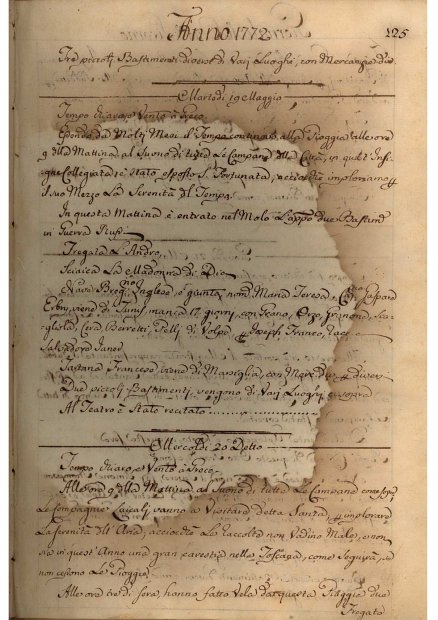 Anno 1772
225
Tre piccoli Bastimenti diversi di Vari Luoghi, con Mercanzie div.
Martedì 19 Maggio
Tempo chiaro, e Vento a Greco
Essendo da Molti Mesi il Tempo continuo alla Pioggia, alle ore
9 della Mattina, al Suono di tutte Le Campane della Città, in quest' Insi-
gne Collegiata è stato esposto S. Fortunata, acciò imploriamo
il suo Mezzo La Serenità del Tempo
In questa Mattina è entrato nel Molo Lasso due Bastim.
in Guerra Russi
Fregata L'Andro
Sciaica La Madonna di
Nave Inglese, è giunta nom. Maria Teresa, Gaspare
viene di Tunis, manca 17 giorni, con Grano, Orzo,
Berretti, Pelli di Volpe, Joseph Franco,
Salvadore
Tartana Francese viene di Marsiglia, con
Due piccoli Bastimenti, vengono di Vari Luoghi
Al Teatro è Stato recitato
Mercoldì 20 Detto
Tempo chiaro, e Vento a Greco
Alle ore 9 della Mattina, al Suono di tutte Le Campane come sop.
Le Compagnie Laicali vanno a Visitare detta Santa, implorare
La Serenità dell' Aria, acciocchè Le Raccolte non Vadino Male, e non
sia in quest' Anno una gran carestia nella Toscana, come Seguirà, se
non cessono Le Pioggie
Alle ore tre di sera, hanno fatto Vela da questa Piaggia due
Fregate